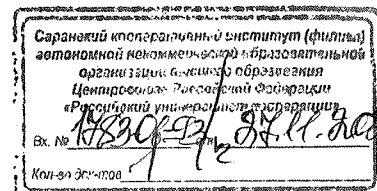 Саранский кооперативный институт (филиал)
автономной некоммерческой образовательной
организации высшего образования
Центросоюза Российской Федерации
«Российский университет кооперации»
Вх. № 27.11.
Кол-во